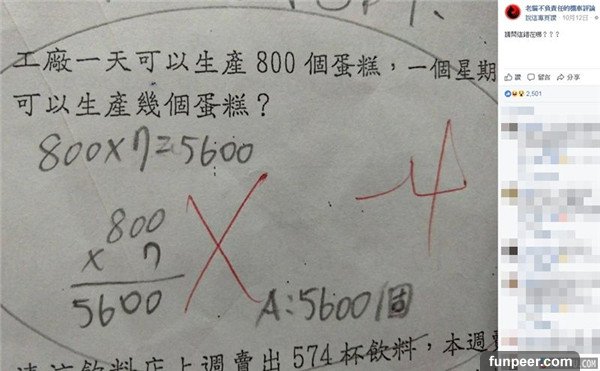 工廠一天可以生產 800 個蛋糕，一個星期
可以生產幾個蛋糕？
800×7=5600
800
× 7
5600
-4
A:5600個
574 杯飲料，本週
老貓不負責任的機車評論
說這專頁讚
10月12日
請問這錯在哪？？？
讚 留言 分享
2,501
funpeer.com